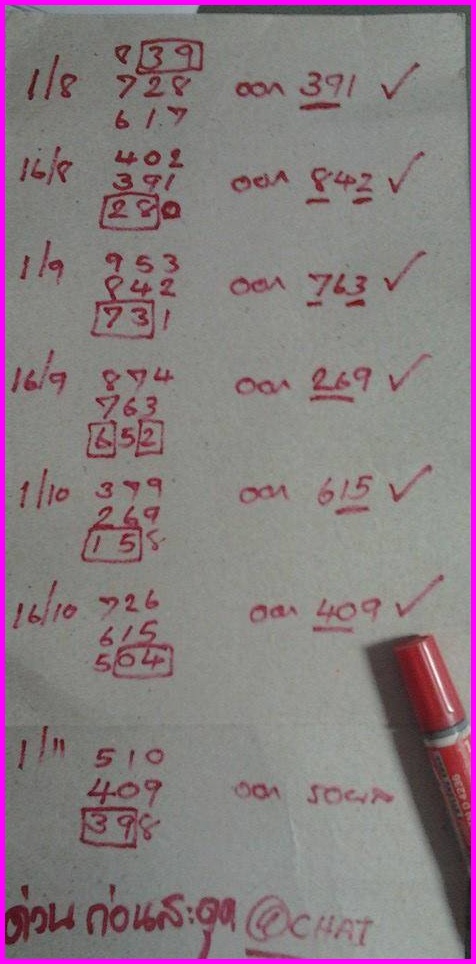 839
1/8 728 ออก 391 ✓
617
402
16/8 391 ออก 842 ✓
280
1/9 953
842 ออก 763 ✓
731
16/9 874 ออก 269 ✓
763
652
1/10 379 ออก 615 ✓
269
158
16/10 726 ออก 409 ✓
615
504
1/11 510
409 ออก รอผล
398
ด่วน ก่อนสะดุด @CHAT